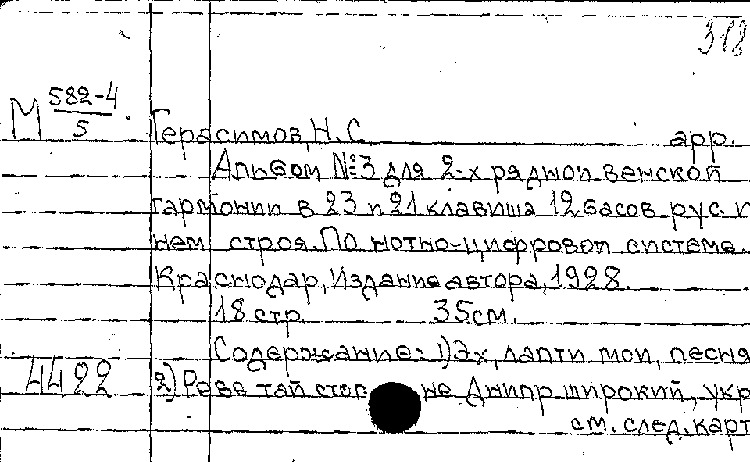 318
М 582-4/5
Герасимов, Н. С. арр.
Альбом №3 для 2-х рядной венской
гармонии в 23 и 21 клавиша 12 басов рус. и
нем строя. По нотно-цифровой системе.
Краснодар, Издание автора, 1928.
18 стр. 35см.
Содержание: 1) Эх, лапти мои, песня
4422 2) Реве тай стог не Днипр широкий, укр
см. след. карт